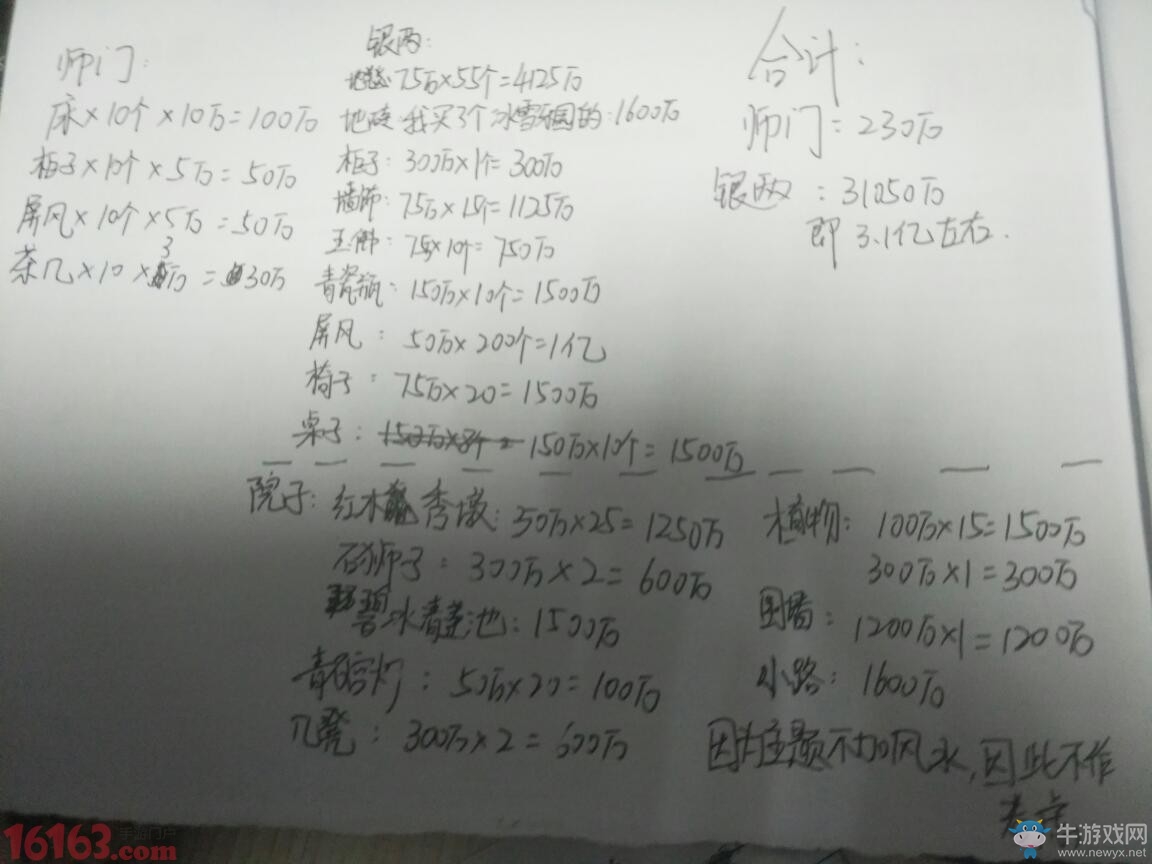 师门:
床×10个×10万=100万
柜子×10个×5万=50万
屏风×10个×5万=50万
茶几×10×3万=30万
银两:
地毯:75万×55个=4125万
地砖:我买了个冰雪乐园的:1600万
柜子:300万×1个=300万
墙饰:75万×15个=1125万
玉佛:75×10个=750万
青瓷瓶:150万×10个=1500万
屏风:50万×200个=1亿
椅子:75万×20=1500万
桌子:150万×10个=1500万
合计:
师门:230万
银两:31050万
即3.1亿左右.
院子:红木秀墩:50万×25=1250万
石狮子:300万×2=600万
碧冰青莲池:1500万
青石宫灯:50万×20=100万
几凳:300万×2=600万
植物:100万×15=1500万
300万×1=300万
围墙:1200万×1=1200万
小路:1600万
因为主题不加风水,因此不作
考虑
16163.com
手游门户
牛游戏网
www.newyx.net